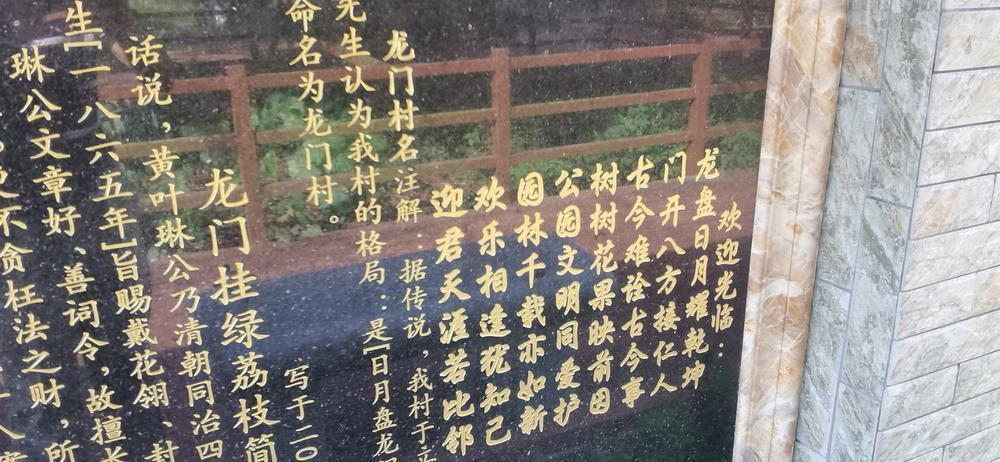 欢迎光临：
龙盘日月耀乾坤
门开八方接仁人
古今难诠古今事
树树花果映前因
公园文明同爱护
园林千载亦如新
欢乐相逢犹知己
迎君天涯若比邻
龙门村名注解：据传说，我村于立
先生认为我村的格局：是[日月盘龙
命名为龙门村。
写于二〇
龙门挂绿荔枝简
话说，黄叶琳公乃清朝同治四
生[一八六五年]旨赐戴花翎、封
琳公文章好、善词令，故擅长
不贪枉法之财，所